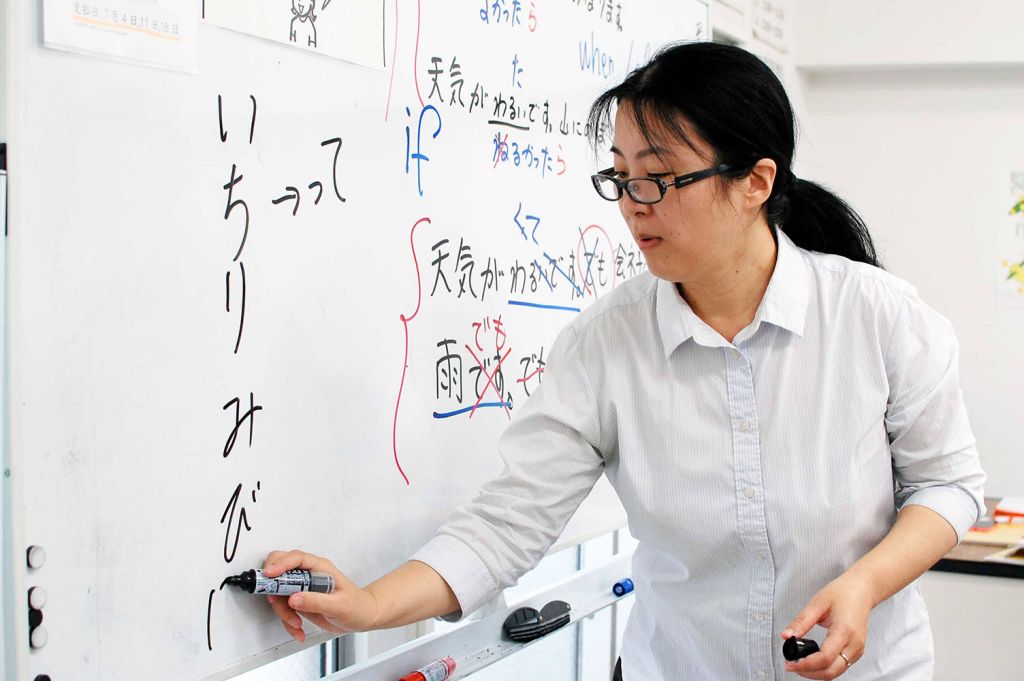 支払日:7月4日,11日,18日
よかったら
when
た
天気がわるいです。山にの
わるかったら
if
いちりみび
→って
くて
天気がわるいです。でも会社
でも
雨です。でも